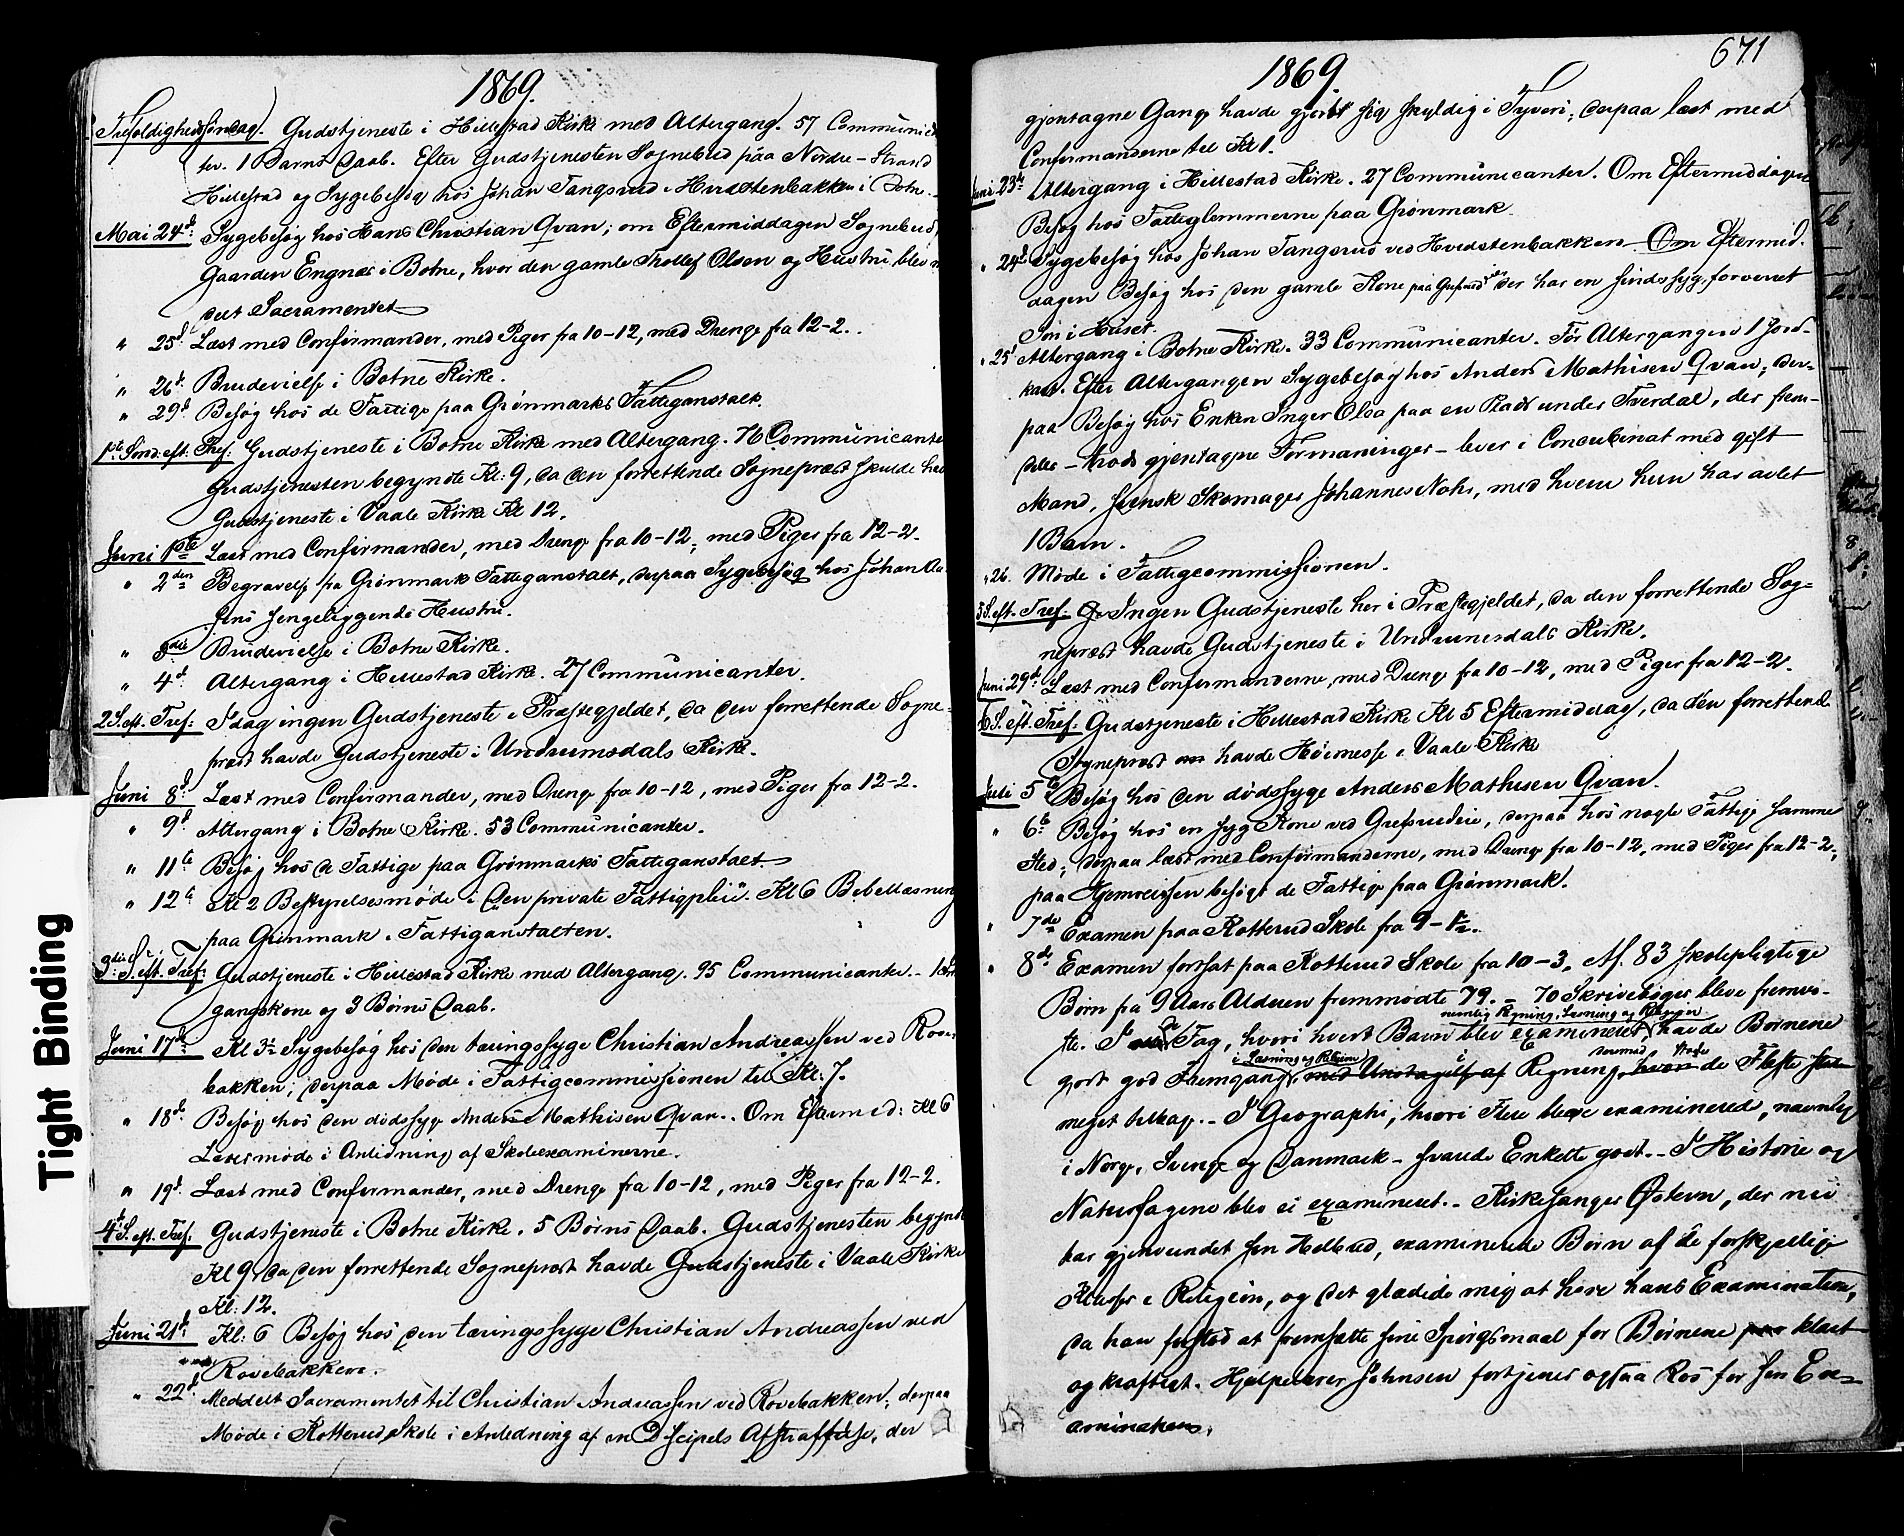 1869.
Trefoldighedssöndag. Gudstjeneste i Hillestad Kirke med Altergang. 57 Communican-
ter. 1 Barns Daab. Efter Gudstjenesten Sognebud paa Nordre-Strand
Hillestad og Sygebesøg hos Johan Tangsrud i Hvidstenbakken i Botne.
Mai 24d. Sygebesøg hos Hans Christian Qvan; om Eftermiddagen Sognebud,
Gaarden Engnæs i Botne, hvor den gamle Thollef Olsen og Hustru blev
det Sacramentet
" 25d. Læst med Confirmander, med Piger fra 10-12, med Drenge fra 12-2.
" 26d. Brudevielse i Botne Kirke.
" 29d. Besøg hos de Fattige paa Grønmarks Fattiganstalt.
1ste Sönd. eft. Tref: Gudstjeneste i Botne Kirke med Altergang. 76 Communicanter
Gudstjenesten begyndte Kl: 9, da den forrettende Sognepræst skulde have
Gudstjeneste i Vaale Kirke Kl 12.
Juni 1ste Læst med Confirmander, med Drenge fra 10-12, med Piger fra 12-2.
" 2den Begravelse fra Grønmark Fattiganstalt, derpaa Sygebesøg hos Johan
sens sengeliggende Hustru.
" 3die Brudevielse i Botne Kirke.
" 4d. Altergang i Hillestad Kirke. 27 Communicanter.
2 S. eft. Tref: Idag ingen Gudstjeneste i Præstegjeldet, da den forrettende Sogne-
præst havde Gudstjeneste i Undrumsdals Kirke.
Juni 8d. Læst med Confirmander, med Drenge fra 10-12, med Piger fra 12-2.
" 9d. Altergang i Botne Kirke. 53 Communicanter.
" 11te Besøg hos de Fattige paa Grønmarks Fattiganstalt.
" 12te Kl 2 Bestyrelsesmøde i Den private Fattigpleie. Kl 6 Bibellæsning
paa Grønmark. Fattiganstalten.
3die S. eft. Tref: Gudstjeneste i Hillestad Kirke med Altergang. 95 Communicanter. - 1
gangskone og 3 Børns Daab.
Juni 17d. Kl 3½ Sygebesøg hos den tæringssyge Christian Andreassen ved Rove-
bakken; derpaa Møde i Fattigcommissionen til Kl: 7.
" 18d. Besøg hos den dødssyge Anders Mathisen Qvan. Om Eftermid: Kl 6
Lærermøde i Anledning af Skoleexaminerne.
" 19d. Læst med Confirmander, med Drenge fra 10-12, med Piger fra 12-2.
4de S. eft. Tref: Gudstjeneste i Botne Kirke. 5 Børns Daab. Gudstjenesten begyndte
Kl 9, da den forrettende Sognepræst havde Gudstjeneste i Vaale Kirke
Kl: 12.
Juni 21d. Kl: 6 Besøg hos den tæringssyge Christian Andreassen ved
Rovebakken.
" 22d. Meddelt Sacramentet til Christian Andreassen ved Rovebakken; derpaa
Møde i Kotterud Skole i Anledning af en Discipels Afstraffelse, der
671
1869.
gjentagne Gange havde gjort sig skyldig i Tyveri; derpaa læst med
Confirmanderne til Kl 1.
Juni 23de Altergang i Hillestad Kirke. 27 Communicanter. Om Eftermiddagen
Besøg hos Fattiglemmerne paa Grønmark.
" 24d. Sygebesøg hos Johan Tangsrud ved Hvidstenbakken. Om Eftermid-
dagen Besøg hos den gamle Kone paa der har en sindssyg, forvirret
Søn i Huset.
" 25d. Altergang i Botne Kirke. 33 Communicanter. Før Altergangen 1 Jord-
kast. Efter Altergangen Sygebesøg hos Anders Mathisen Qvan, der-
paa Besøg hos Enken Inger Olsa paa en Plads under Tverdal, der frem-
deles - trods gjentagne Formaninger - lever i Concubinat med gift
Mand, svensk Skomager Johannes Nohr, med hvem hun har avlet
1 Barn.
" 26. Møde i Fattigcommissionen.
5 S. eft. Tref: Ingen Gudstjeneste her i Præstegjeldet, da den forrettende Sog-
nepræst havde Gudstjeneste i Undrumsdals Kirke.
Juni 29d. Læst med Confirmanderne, med Drenge fra 10-12, med Piger fra 12-2.
6 S. eft. Tref: Gudstjeneste i Hillestad Kirke Kl 5 Eftermiddag, da den forrettende
Sognepræst havde Høimesse i Vaale Kirke
Juli 5te Besøg hos den dødssyge Anders Mathisen Qvan.
" 6te Besøg hos en syg Kone ved Grefsrudeie, derpaa hos nogle Fattige samme
Sted; derpaa læst med Confirmanderne, med Drenge fra 10-12, med Piger fra 12-2,
paa Hjemreisen besøgt de Fattige paa Grønmark.
" 7de Examen paa Kotterud Skole fra 9-1½.
" 8de Examen fortsat paa Kotterud Skole fra 10-3. Af 83 skolepligtige
Børn fra 9 Aars Alderen fremmødte 79. - 70 Skrivebøger bleve fremvi-
ste. I de Fag, hvori hvert Barn blev examineret, nemlig Regning, Læsning og Religion havde Børnene
gjort god Fremgang i Læsning og Religion, med Undtagelse af i Regning, hvori de Fleste stode
meget tilbage. - I Geographi, hvori Flere bleve examinerede, navnlig
i Norge, Sverige og Danmark - svarede Enkelte godt. - I Historie og
Naturfagene blev ei examineret. - Kirkesanger Østern, der nu
har gjenvundet sin Helbred, examinerede Børn af de forskjellige
Klasser i Religion, og det glædede mig at høre hans Examination,
da han forstod at fremsætte sine Spørgsmaal for Børnene klart
og kraftigt. Hjelpelærer Johnsen fortjener ogsaa Ros for sin Ex-
amination.
Tight Binding